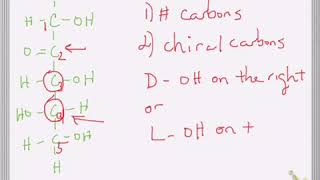 H - C - OH 1) # carbons
1
O = C 2 2) chiral carbons
H - C - OH D - OH on the right
3 or
HO - C - H L - OH on t
4
H - C - OH
5
H